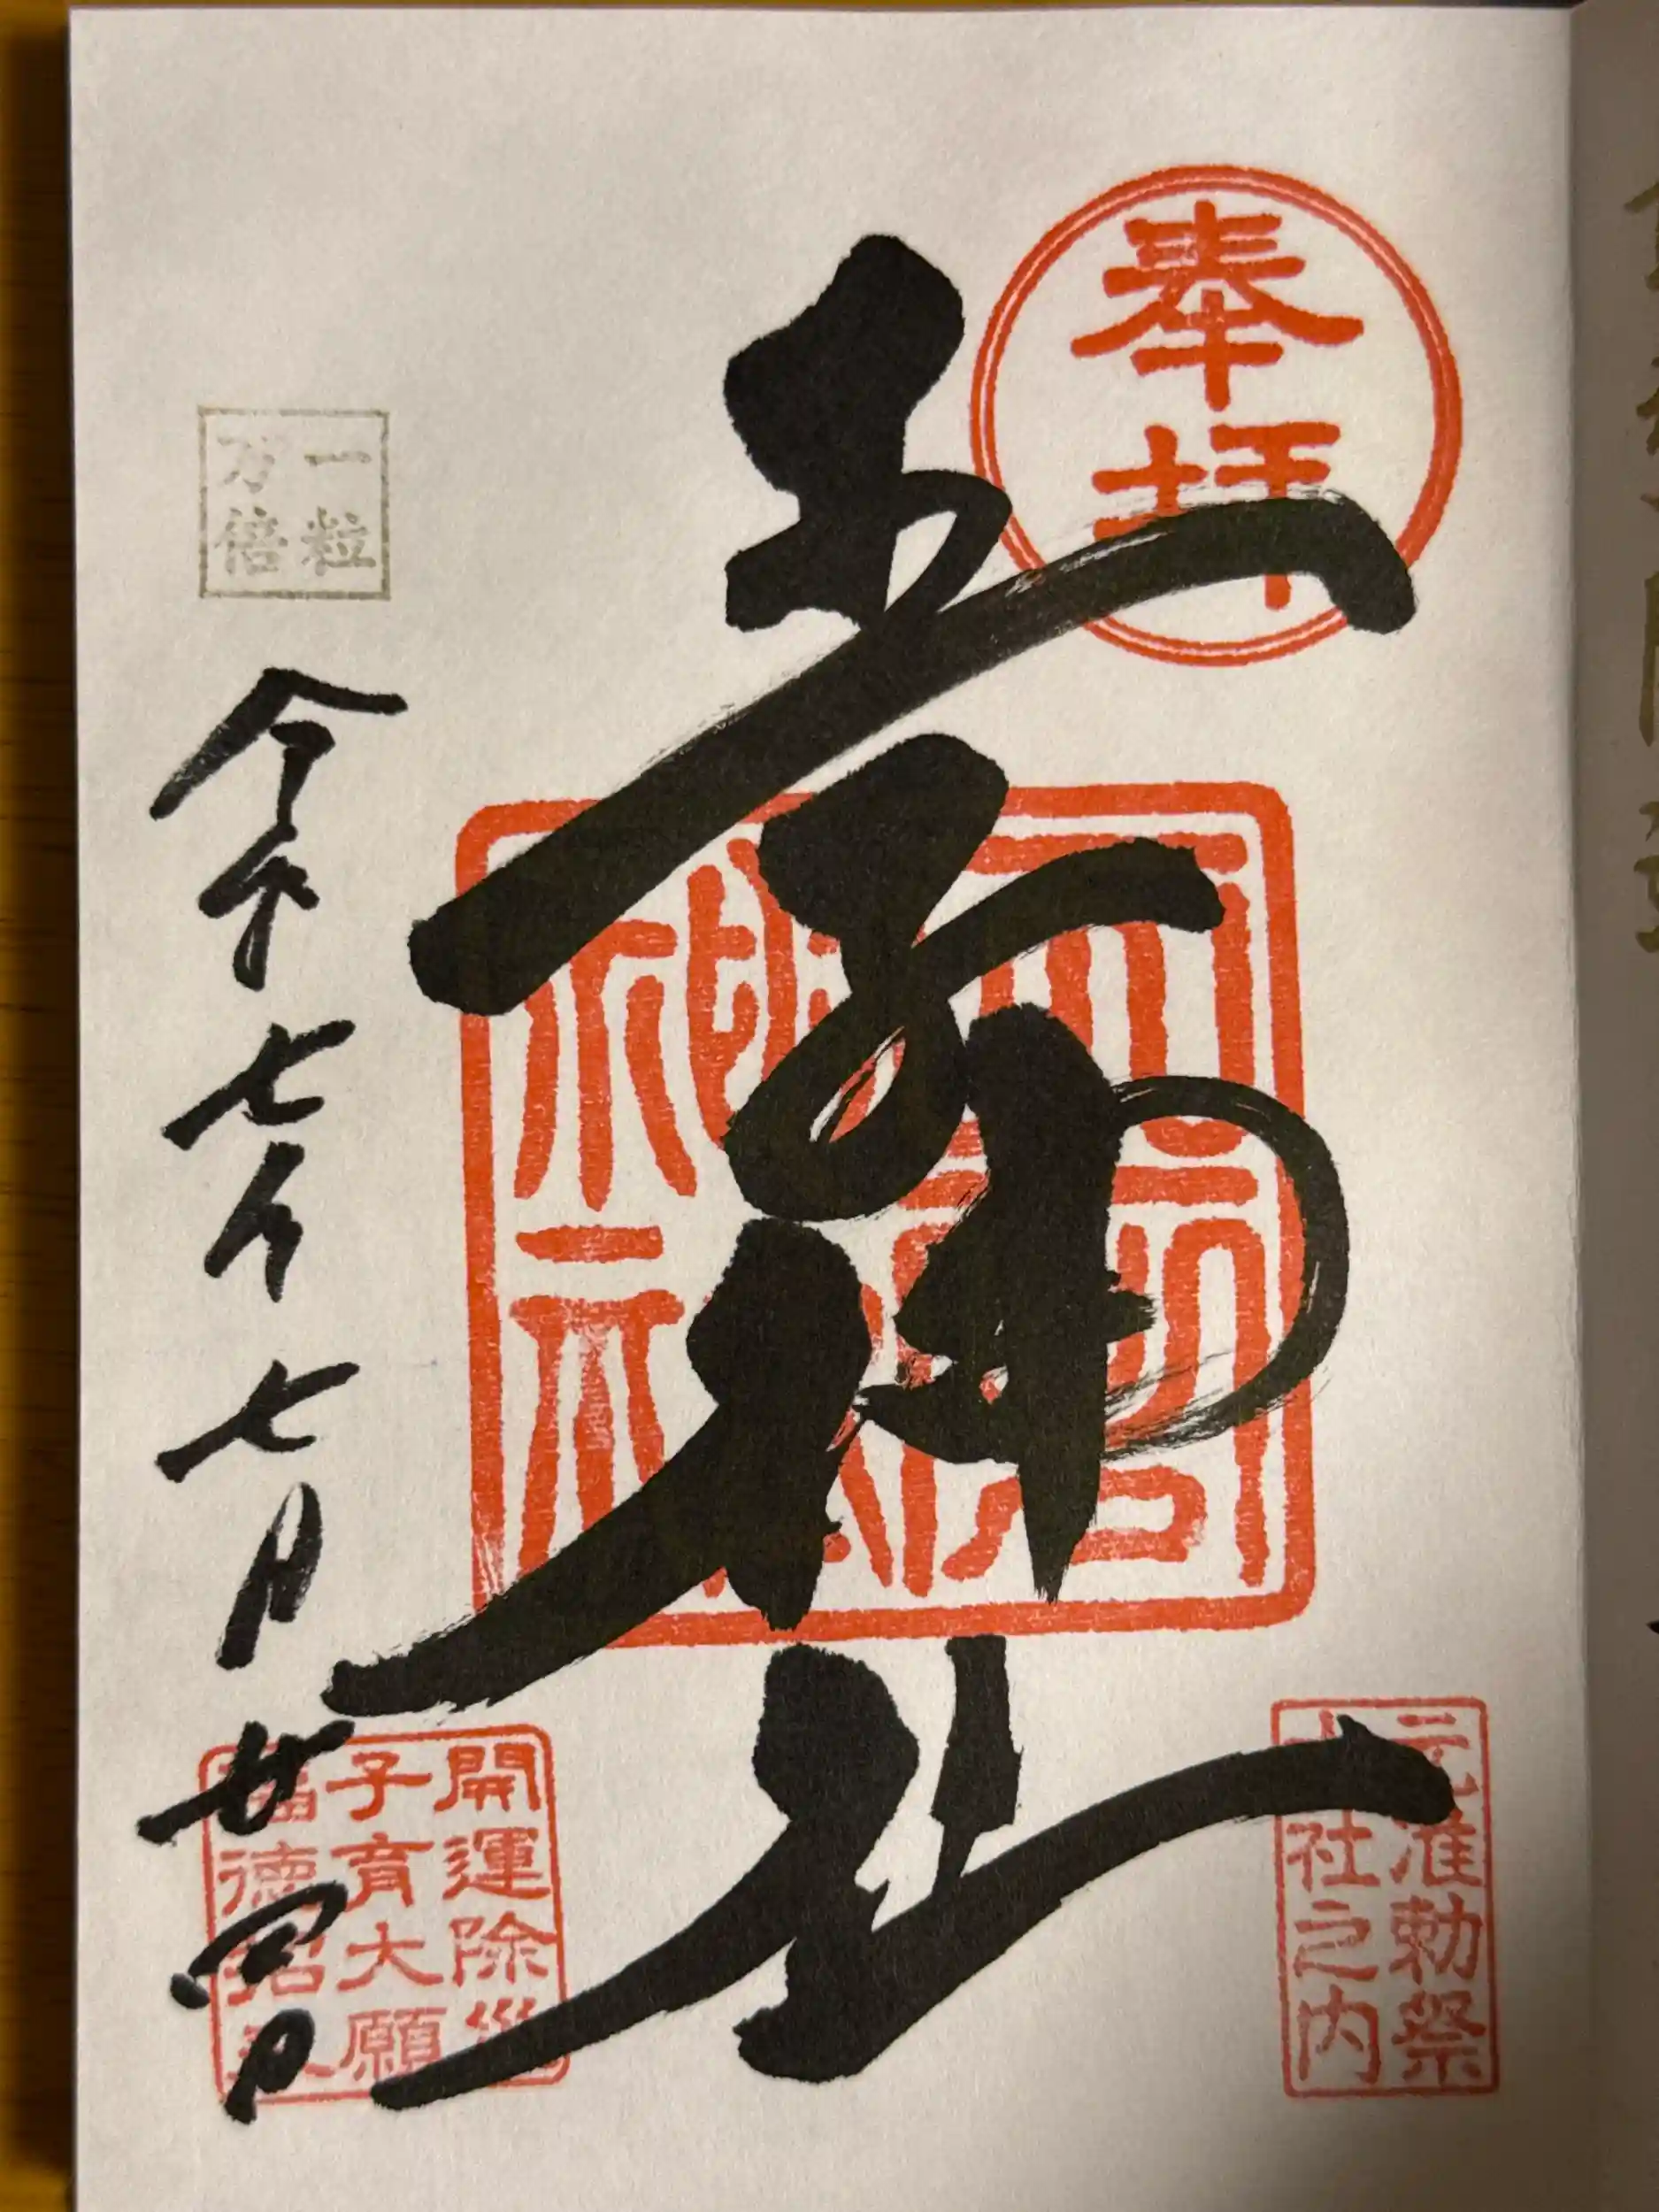 奉拝
王子神社
元准勅祭
十社之内
一粒
万倍
令和七年七月廿四日
開運除災
子育大願
福徳招来